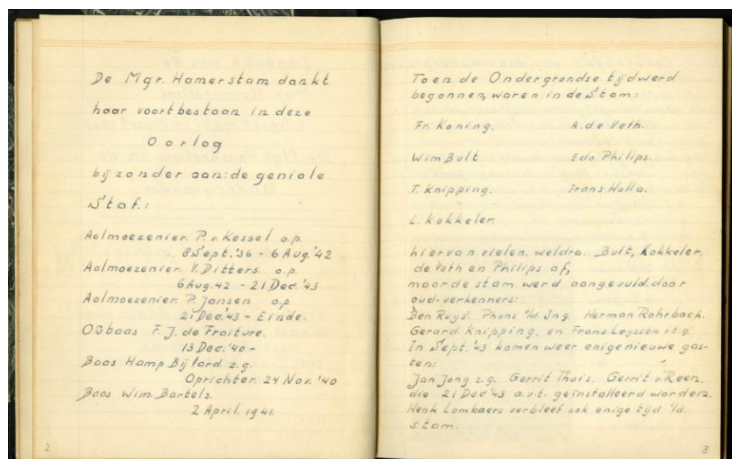 De Mgr. Hamerstam dankt
haar voortbestaan in deze
Oorlog
bijzonder aan: de geniale
Staf:
Aalmoezenier. P. v. Kessel o.p.
8 Sept. '36 - 6 Aug. '42
Aalmoezenier. V. Ditters. o.p.
6 Aug. 42 - 21 Dec. '43
Aalmoezenier. P. Jansen o.p.
21 Dec. '43 - Einde.
OSbaas F. J. de Fraiture.
13 Dec. '40 -
Baas Hamp Bijlard. z.g.
Oprichter. 24 Nov. '40
Baas Wim. Bartels.
2 April. 1941.
2
Toen de Ondergrondse tijd werd
begonnen, waren in de Stam:
Fr. Koning. A. de Veth.
Wim Bult Edo Philips.
T. Knipping. Frans Holla.
L. Kokkeler.
hiervan vielen, weldra. Bult, Kokkeler,
de Veth en Philips af,
maar de stam werd aangevuld door
oud-verkenners:
Ben Ruys. Phons v/d. Ing. Herman Rohrbach.
Gerard. Knipping, en Frans Leyssen
In Sept. '43 komen weer enige nieuwe gas-
ten:
Jan Jong z.g. Gerrit Thuis, Gerrit v. Reen,
die 21 Dec '43 a.v.t. geïnstalleerd worden.
Henk Lombaers verbleef ook enige tijd i/d.
stam.
3